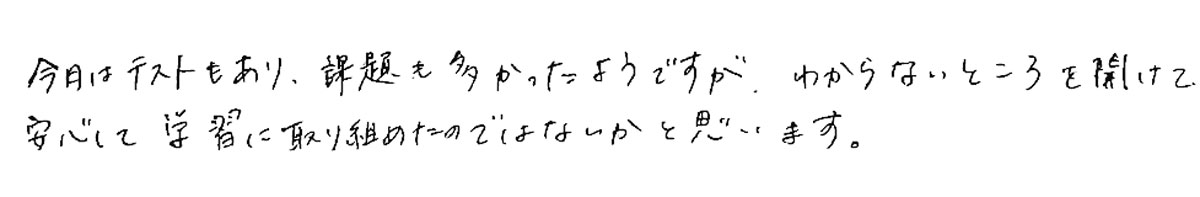 今日はテストもあり、課題も多かったようですが、わからないところを聞けて、
安心して学習に取り組めたのではないかと思います。